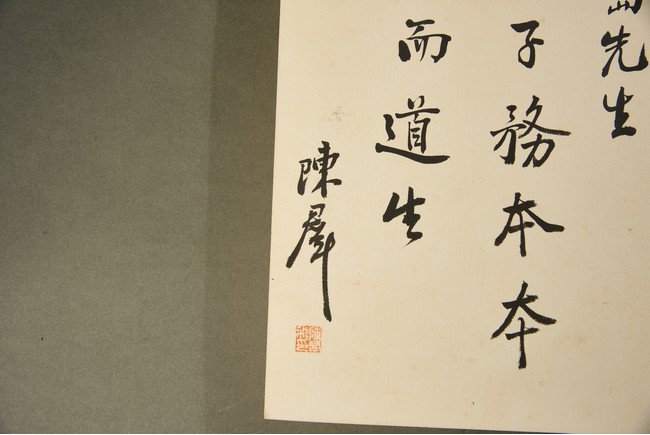 先生
子務本本
而道生
陳羣